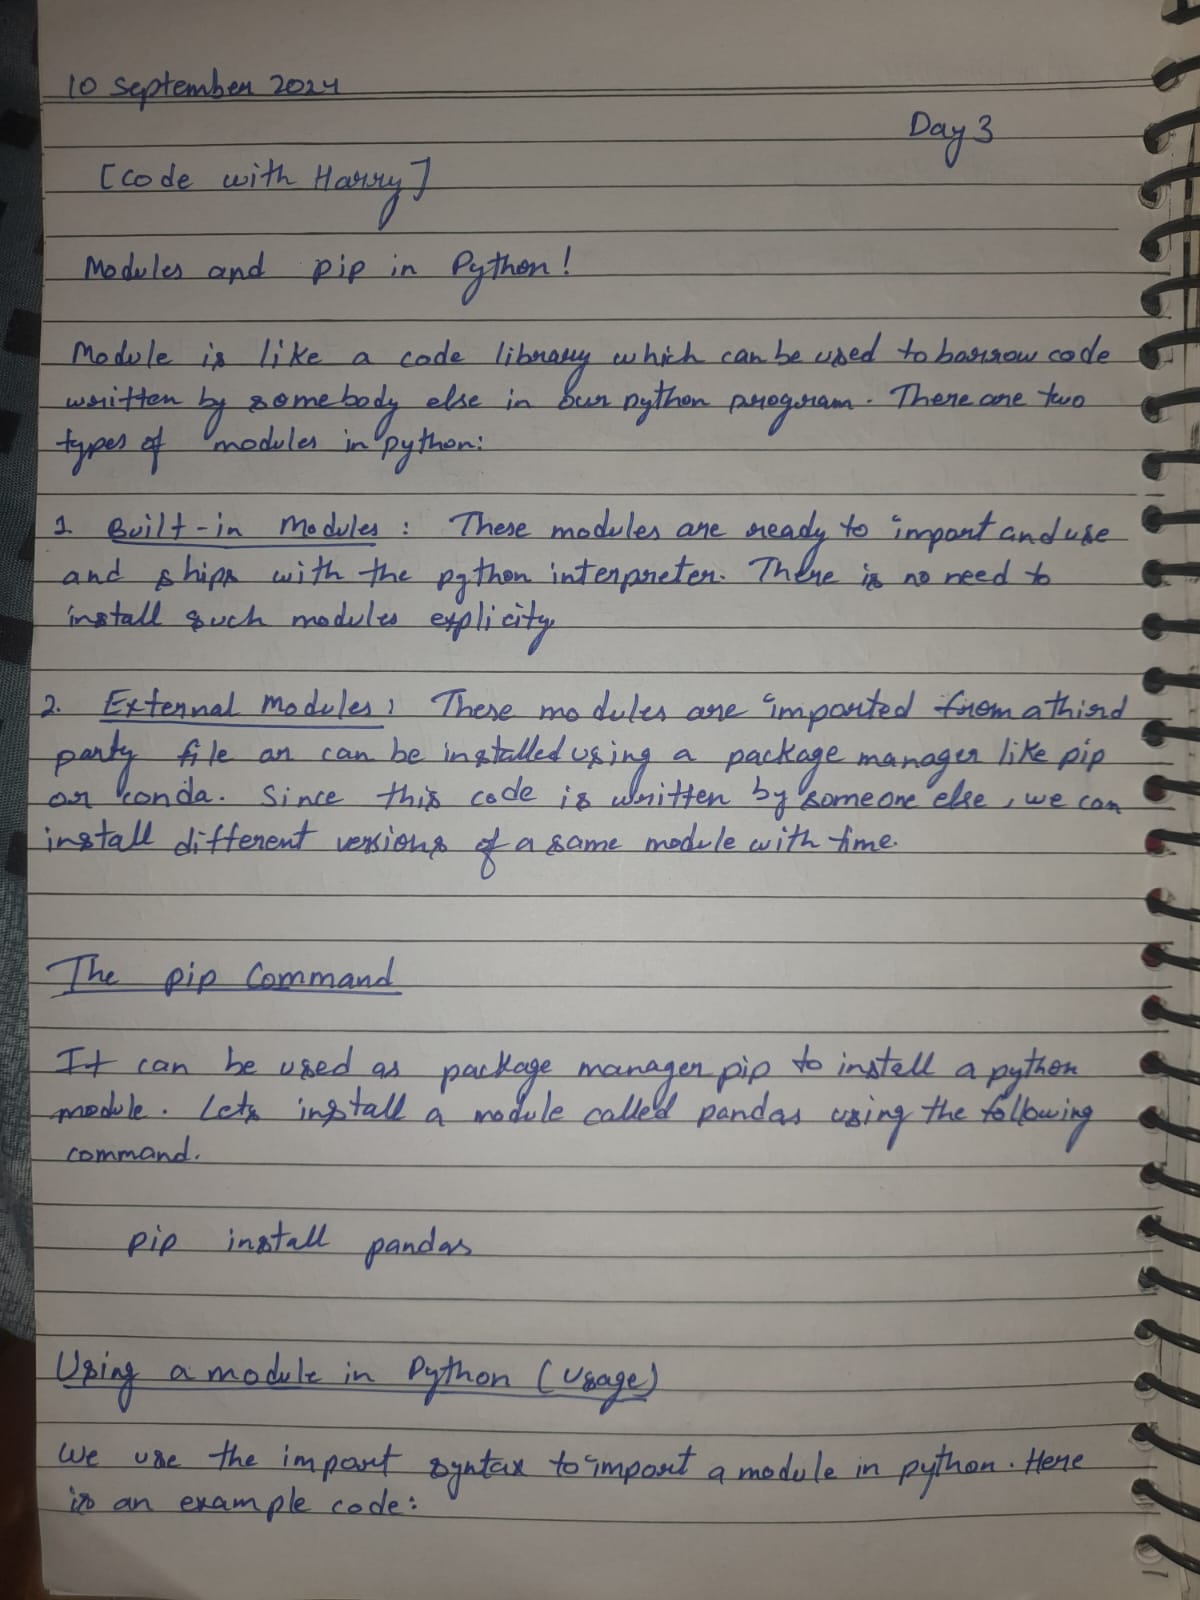 10 September 2024
Day 3
[Code with Harry]
Modules and pip in Python!
Module is like a code library which can be used to borrow code
written by somebody else in our python program. There are two
types of modules in python:
1. Built-in Modules : These modules are ready to import and use
and ships with the python interpreter. There is no need to
install such modules explicity
2. External Modules : These modules are imported from a third
party file or can be installed using a package manager like pip
or conda. Since this code is written by someone else, we can
install different versions of a same module with time.
The pip Command
It can be used as package manager pip to install a python
module. Lets install a module called pandas using the following
command.
pip install pandas
Using a module in Python (Usage)
We use the import syntax to import a module in python. Here
is an example code: